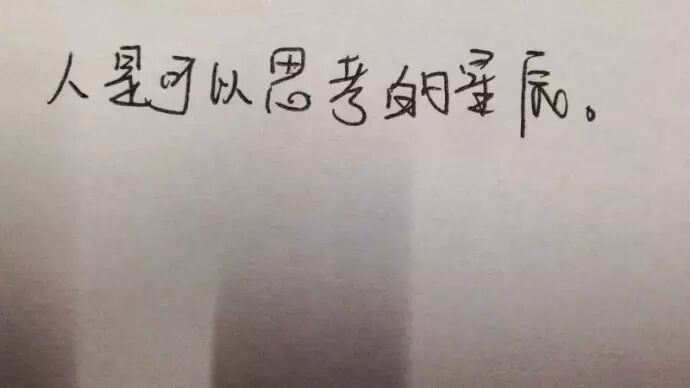 人是可以思考的星辰。